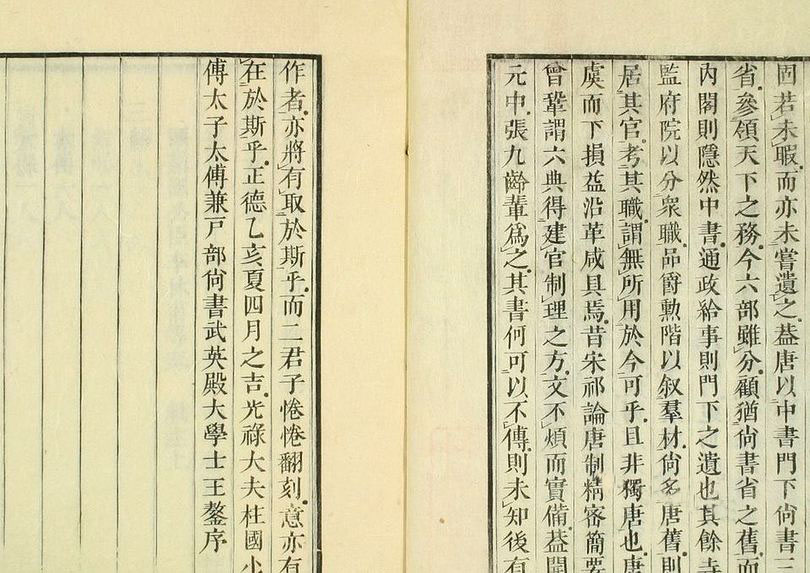 固若未暇而亦未嘗遺之葢唐以中書門下尙書三
省參領天下之務今六部雖分顧猶尙書省之舊而
內閣則隱然中書通政給事則門下之遺也其餘寺
監府院以分衆職品爵勲階以叙羣材尙多唐舊則
居其官考其職謂無所用於今可乎且非獨唐也唐
虞而下損益沿革咸具焉昔宋祁論唐制精密簡要
曾鞏謂六典得建官制理之方文不煩而實備葢開
元中張九齡輩爲之其書何可以不傳則未知後有
作者亦將有取於斯乎而二君子惓惓翻刻意亦有
在於斯乎正德乙亥夏四月之吉光祿大夫柱國少
傅太子太傅兼戸部尙書武英殿大學士王鏊序